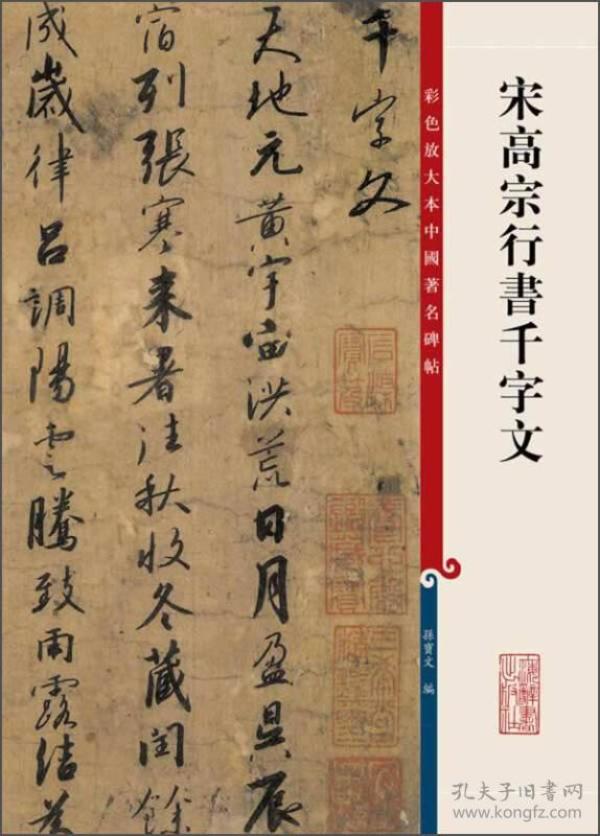 宋高宗行書千字文
彩色放大本中國著名碑帖
孫寶文 編
千字文
天地元黄宇宙洪荒日月盈昃辰
宿列張寒来暑往秋收冬藏閏餘
成歲律呂調陽雲騰致雨露結為
孔夫子旧书网
www.kongfz.com